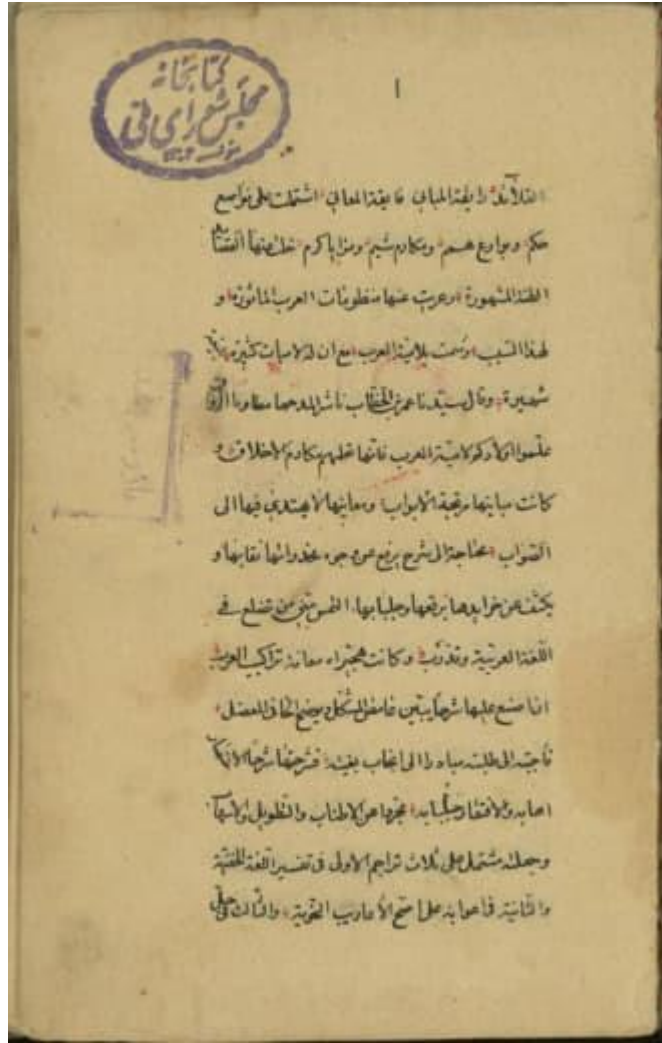 كتابخانه
مجلس شورای ملی
١
القلائد رايقة المباني فايقة المعاني اشتملت على نواصع
حكم وبدايع همم ومكارم شيم ومزايا كرم
المشهورة وعربت عنها منظومات العرب الماثورة و
لهذا السبب وسمت بلامية العرب مع ان له لاميات كثيرة
شهيرة وقال سيدنا عمر بن الخطاب
علموا اولادكم لامية العرب فانها تعلمهم مكارم الاخلاق و
كانت مبانيها مرتجة الابواب ومعانيها لا يهتدي فيها الى
الصواب محتاجة الى شرح يرفع عن وجوه مخدراتها نقابها و
يكشف عن خرايدها برقعها وجلبابها التمس مني من تضلع في
اللغة العربية وتدرب وكانت هجيراه معاناة تراكيب العرب
ان اصنع عليها شرحا يبين غامض المشكل ويوضح الخافي المعضل
فاجبته الى طلبته مبادرا الى ايجاب بغيته فشرحتها شرحا
والافتقار جلبابه عن الاطناب والتطويل
وجعلته مشتمل على ثلاث تراجم الاولى في تفسير اللغة
والثانية في اعرابه على اصح الأعاريب النحوية والثالث في حل